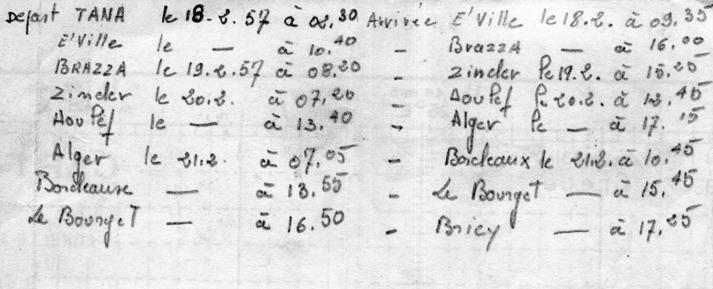 Depart TANA le 18.2.57 à 02.30 Arrivée E'Ville le 18.2. à 09.35
E'Ville le — à 10.40 - Brazza — à 16.00
BRAZZA le 19.2.57 à 08.20 - Zinder le 19.2. à 15.25
Zinder le 20.2. à 07.20 - Aoulef le 20.2. à 12.45
Aoulef le — à 13.40 - Alger le — à 17.15
Alger le 21.2. à 07.05 - Bordeaux le 21.2. à 10.45
Bordeaux — à 13.55 - Le Bourget — à 15.45
Le Bourget — à 16.50 - Briey — à 17.25